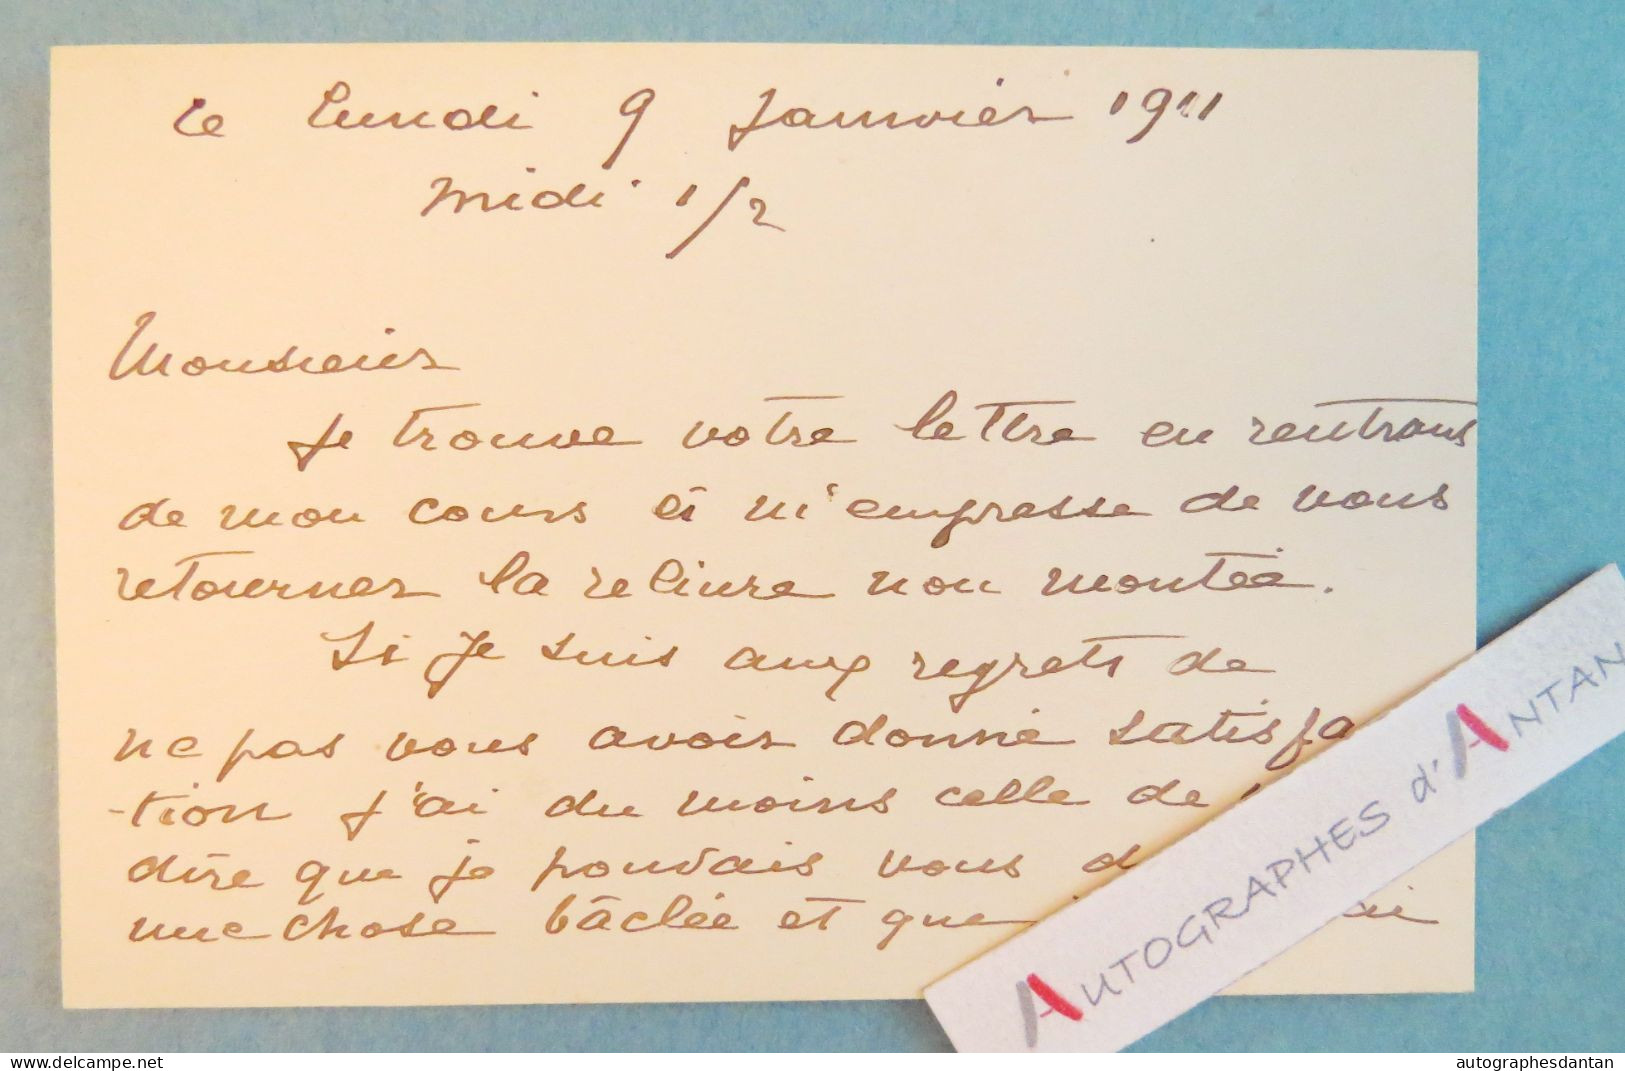 le lundi 9 Janvier 1911
midi 1/2
Monsieur
Je trouve votre lettre en rentrant
de mon cours et m'empresse de vous
retourner la reliure non montée.
Si je suis aux regrets de
ne pas vous avoir donné satisfa
-tion j'ai du moins celle de
dire que je pouvais vous
une chose bâclée et que
AUTOGRAPHES d'ANTAN
delcampe.net
autographesdantan